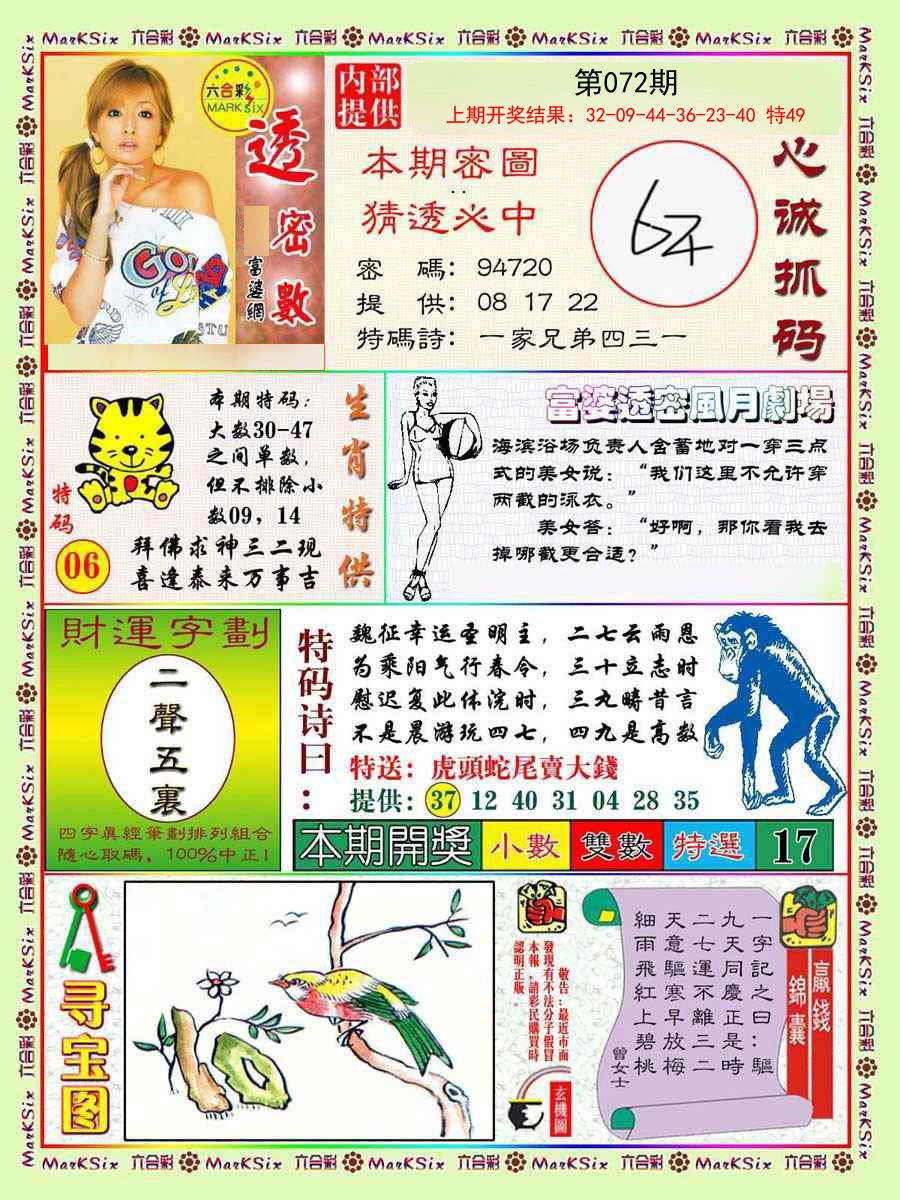 MarKSix 六合彩 MarKSix 六合彩 MarKSix 六合彩 MarKSix 六合彩 MarKSix 六合彩
六合彩
MARK Six
透密數
富婆網
内部
提供
第072期
上期开奖结果：32-09-44-36-23-40 特49
本期密圖
猜透必中
密 碼：94720
提 供：08 17 22
特碼詩：一家兄弟四三一
心诚抓码
本期特码：
大数30-47
之间单数，
但不排除小
数09，14
特码
06
拜佛求神三二现
喜逢泰来万事吉
生肖特供
富婆透密風月劇場
海滨浴场负责人含蓄地对一穿三点
式的美女说：“我们这里不允许穿
两截的泳衣。”
美女答：“好啊，那你看我去
掉哪截更合适？”
財運字劃
二聲五裏
四字眞經筆劃排列組合
隨心取碼，100%中正！
特码诗曰：
魏征幸运圣明主，二七云雨恩
为乘阳气行春令，三十立志时
慰迟复此体浣时，三九畴昔言
不是晨游玩四七，四九是高数
特送：虎頭蛇尾賣大錢
提供：37 12 40 31 04 28 35
本期開獎 小數 雙數 特選 17
寻宝图
敬告：最近市面
發現有不法分子假冒
本報，請彩民購買時
認明正版。
玄機圖
贏錢
錦囊
一字記之曰：驅
九天同慶正是時
二七運不離三二
天意驅寒早放梅
細雨飛紅上碧桃
曾女士
MarKSix 六合彩 MarKSix 六合彩 MarKSix 六合彩 MarKSix 六合彩 MarKSix 六合彩